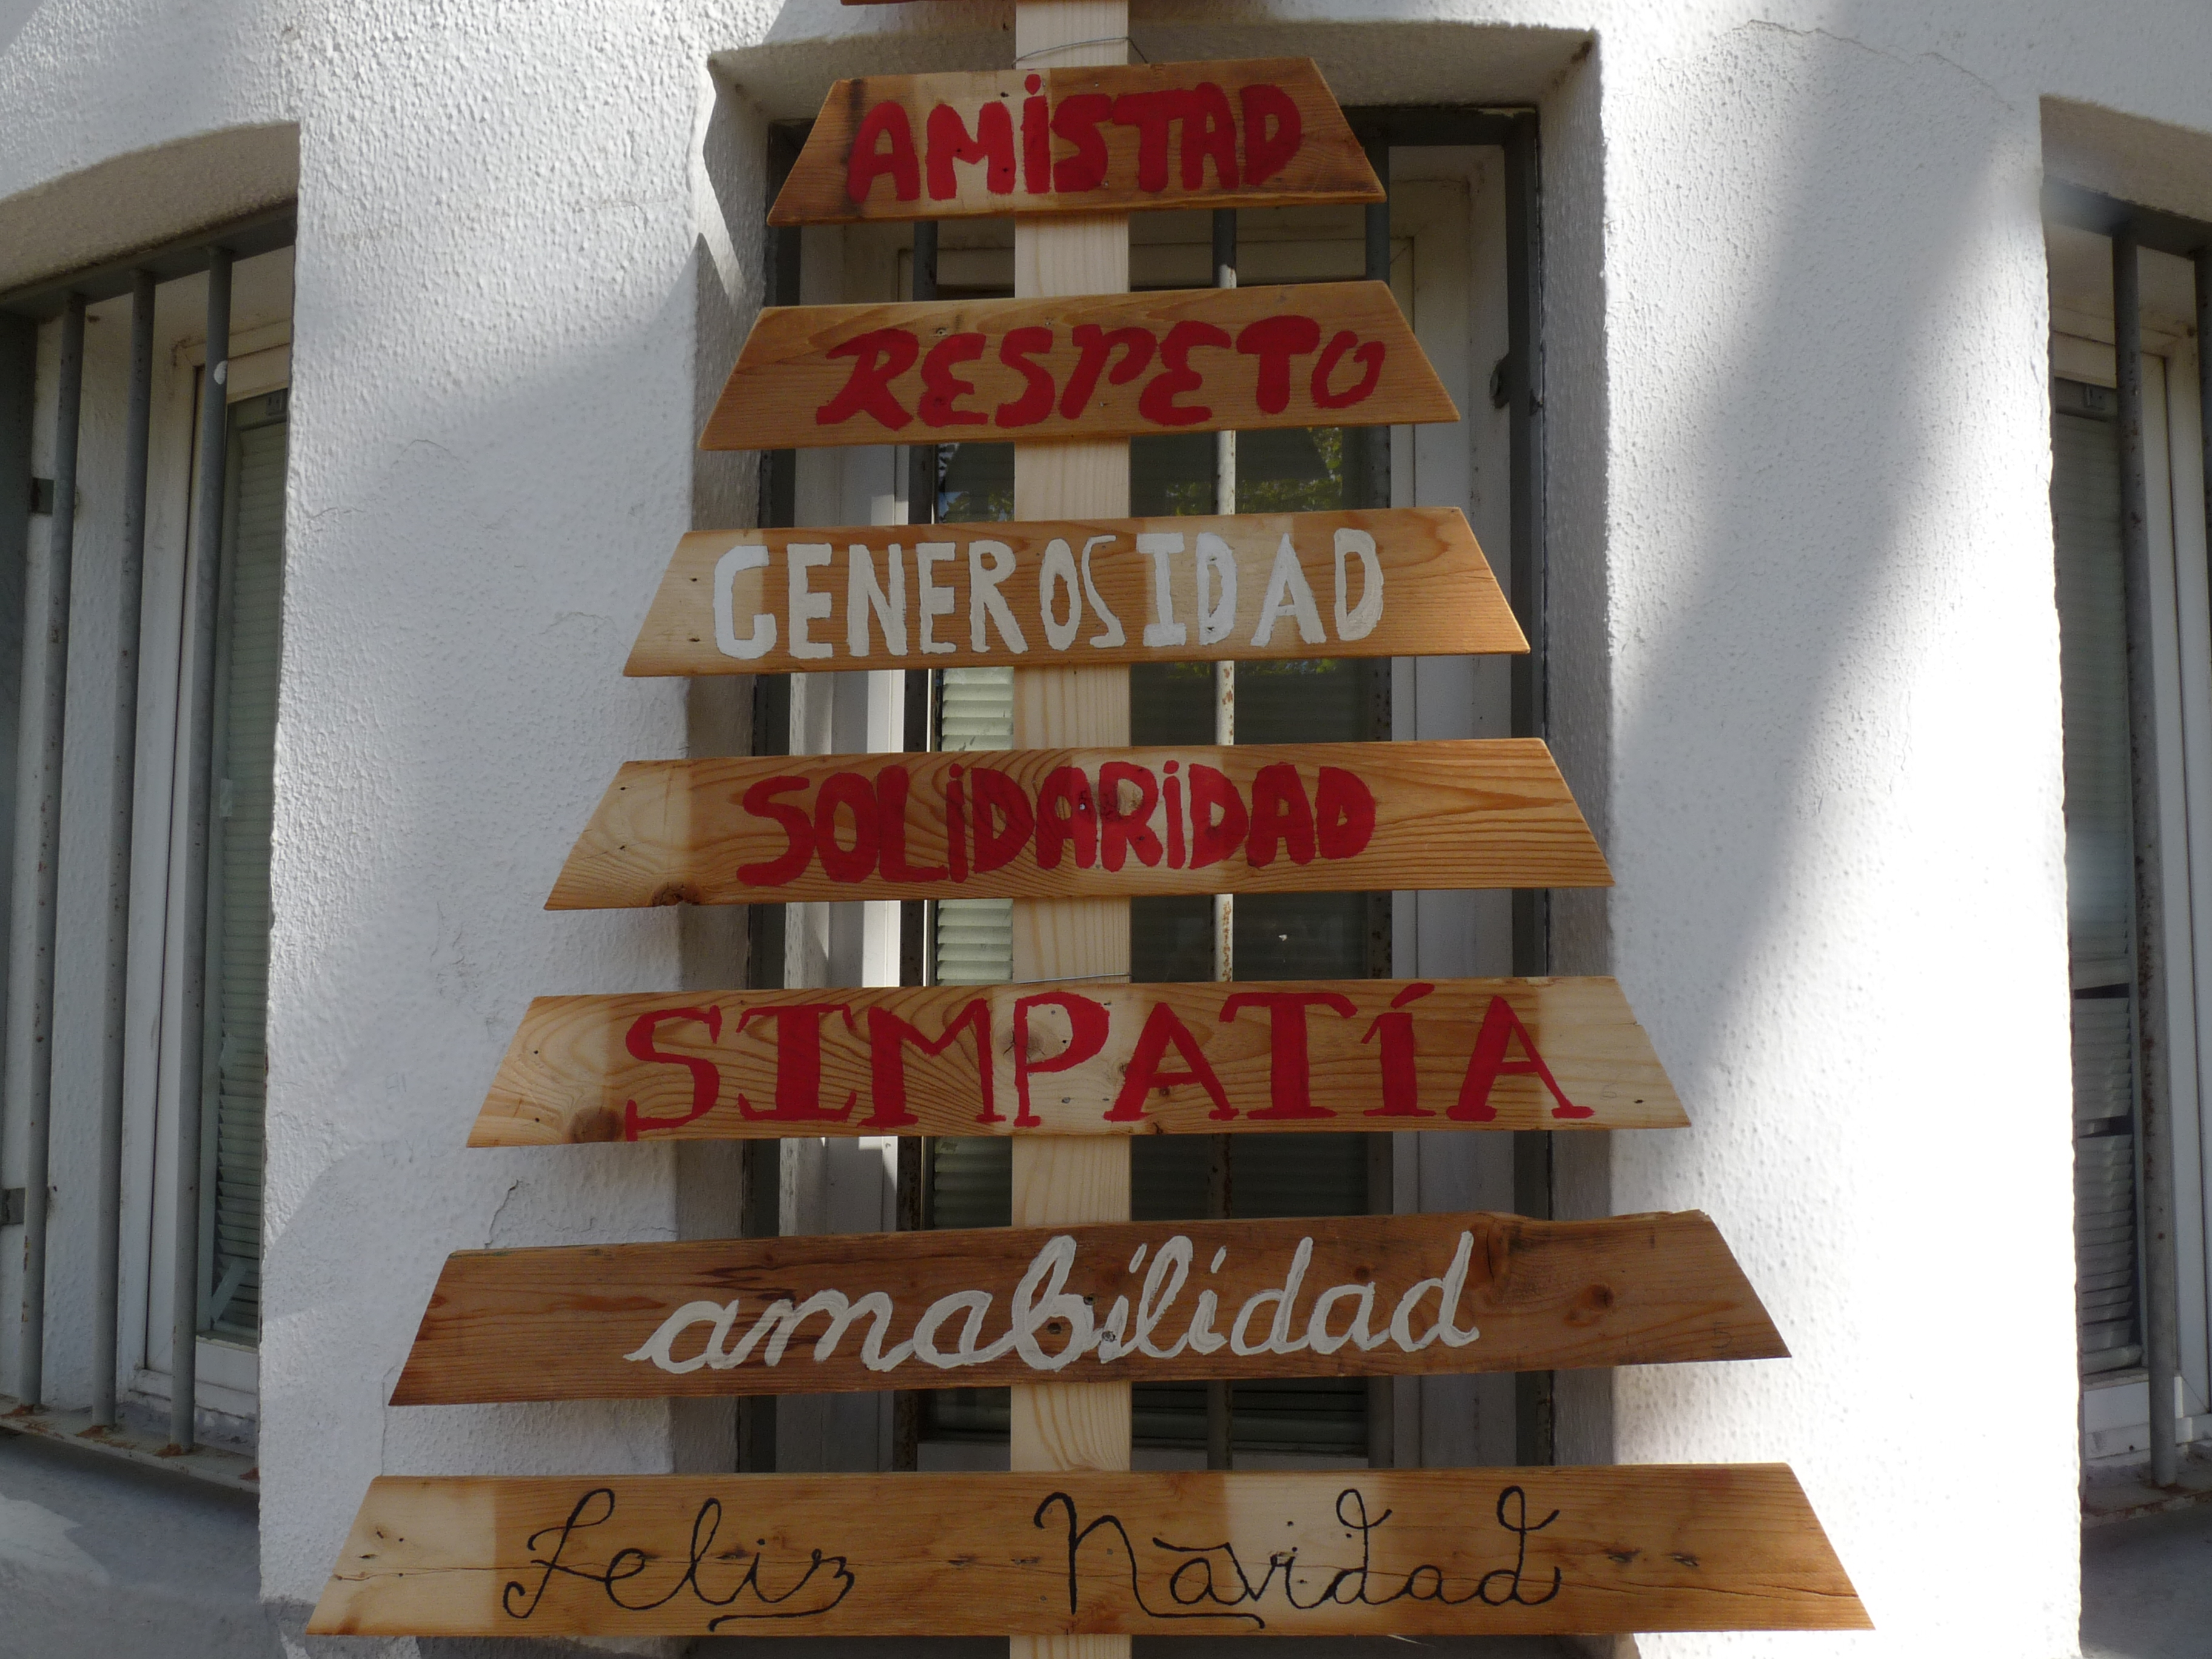 AMiSTAD
RESPETO
GENEROSIDAD
SOLiDARiDAD
SIMPATíA
amabilidad
Feliz Navidad